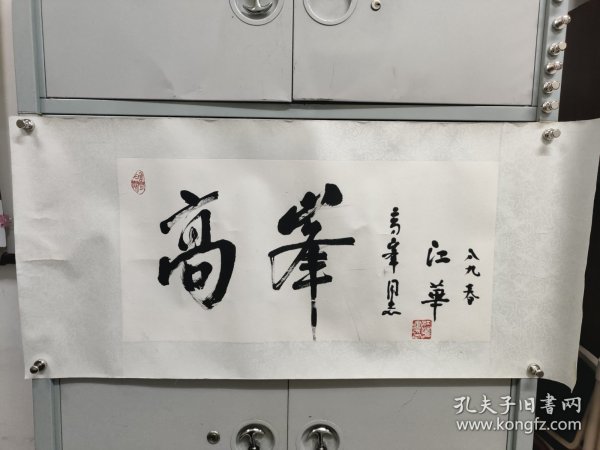 高峯
高峯同志
江華
八九春
孔夫子旧書网
www.kongfz.com